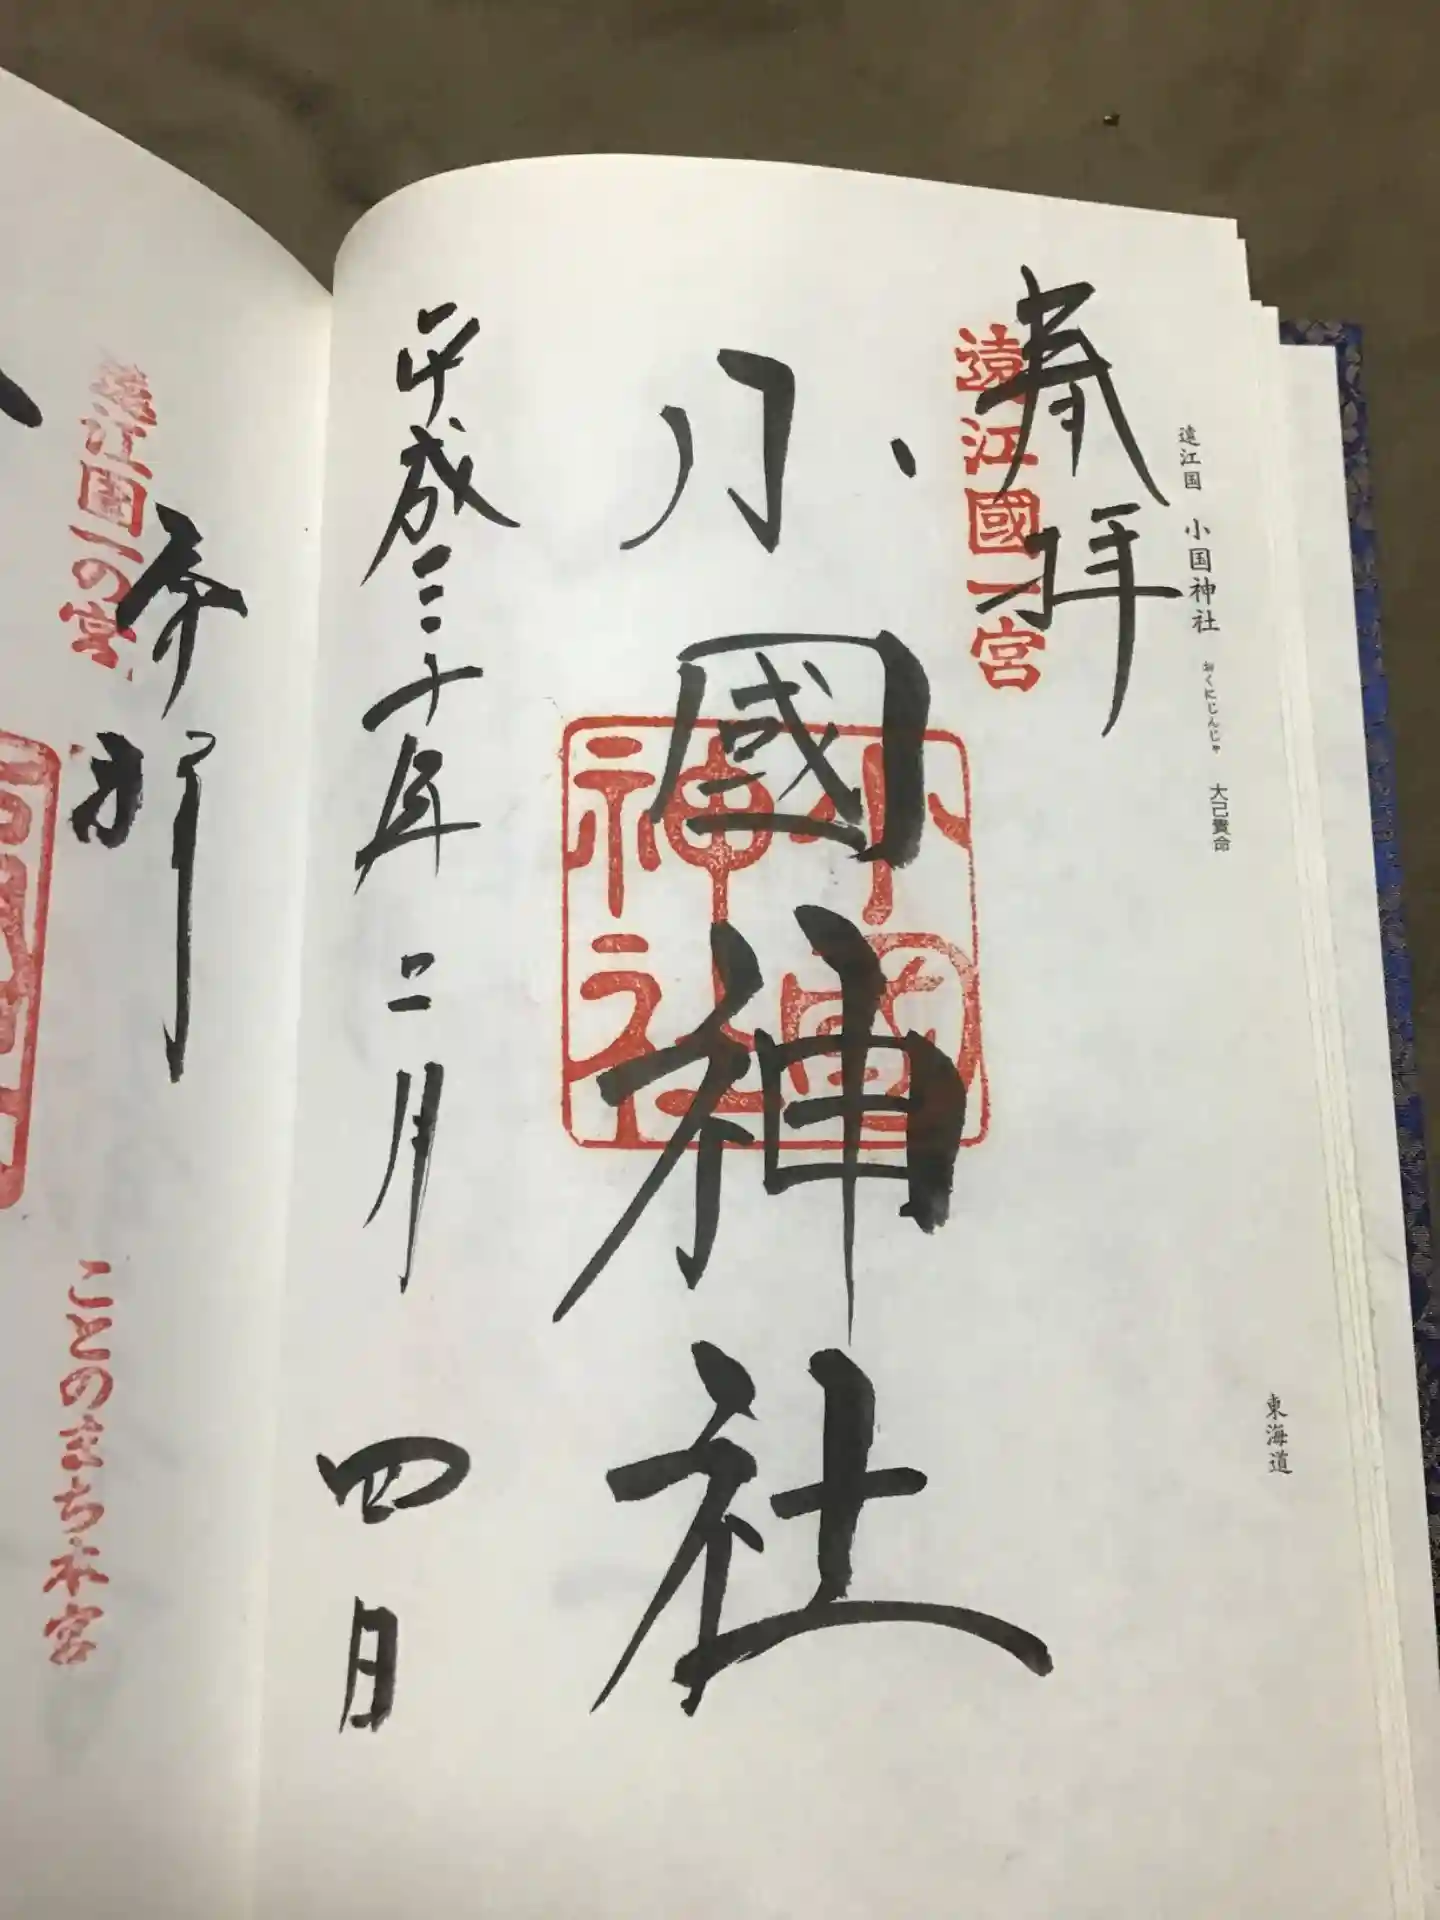 遠江国 小国神社 おくにじんじゃ 大己貴命
東海道
奉拝
遠江國一宮
小國神社
小國神社
平成三十年二月四日
遠江國一の宮
奉拝
ことのまち本宮